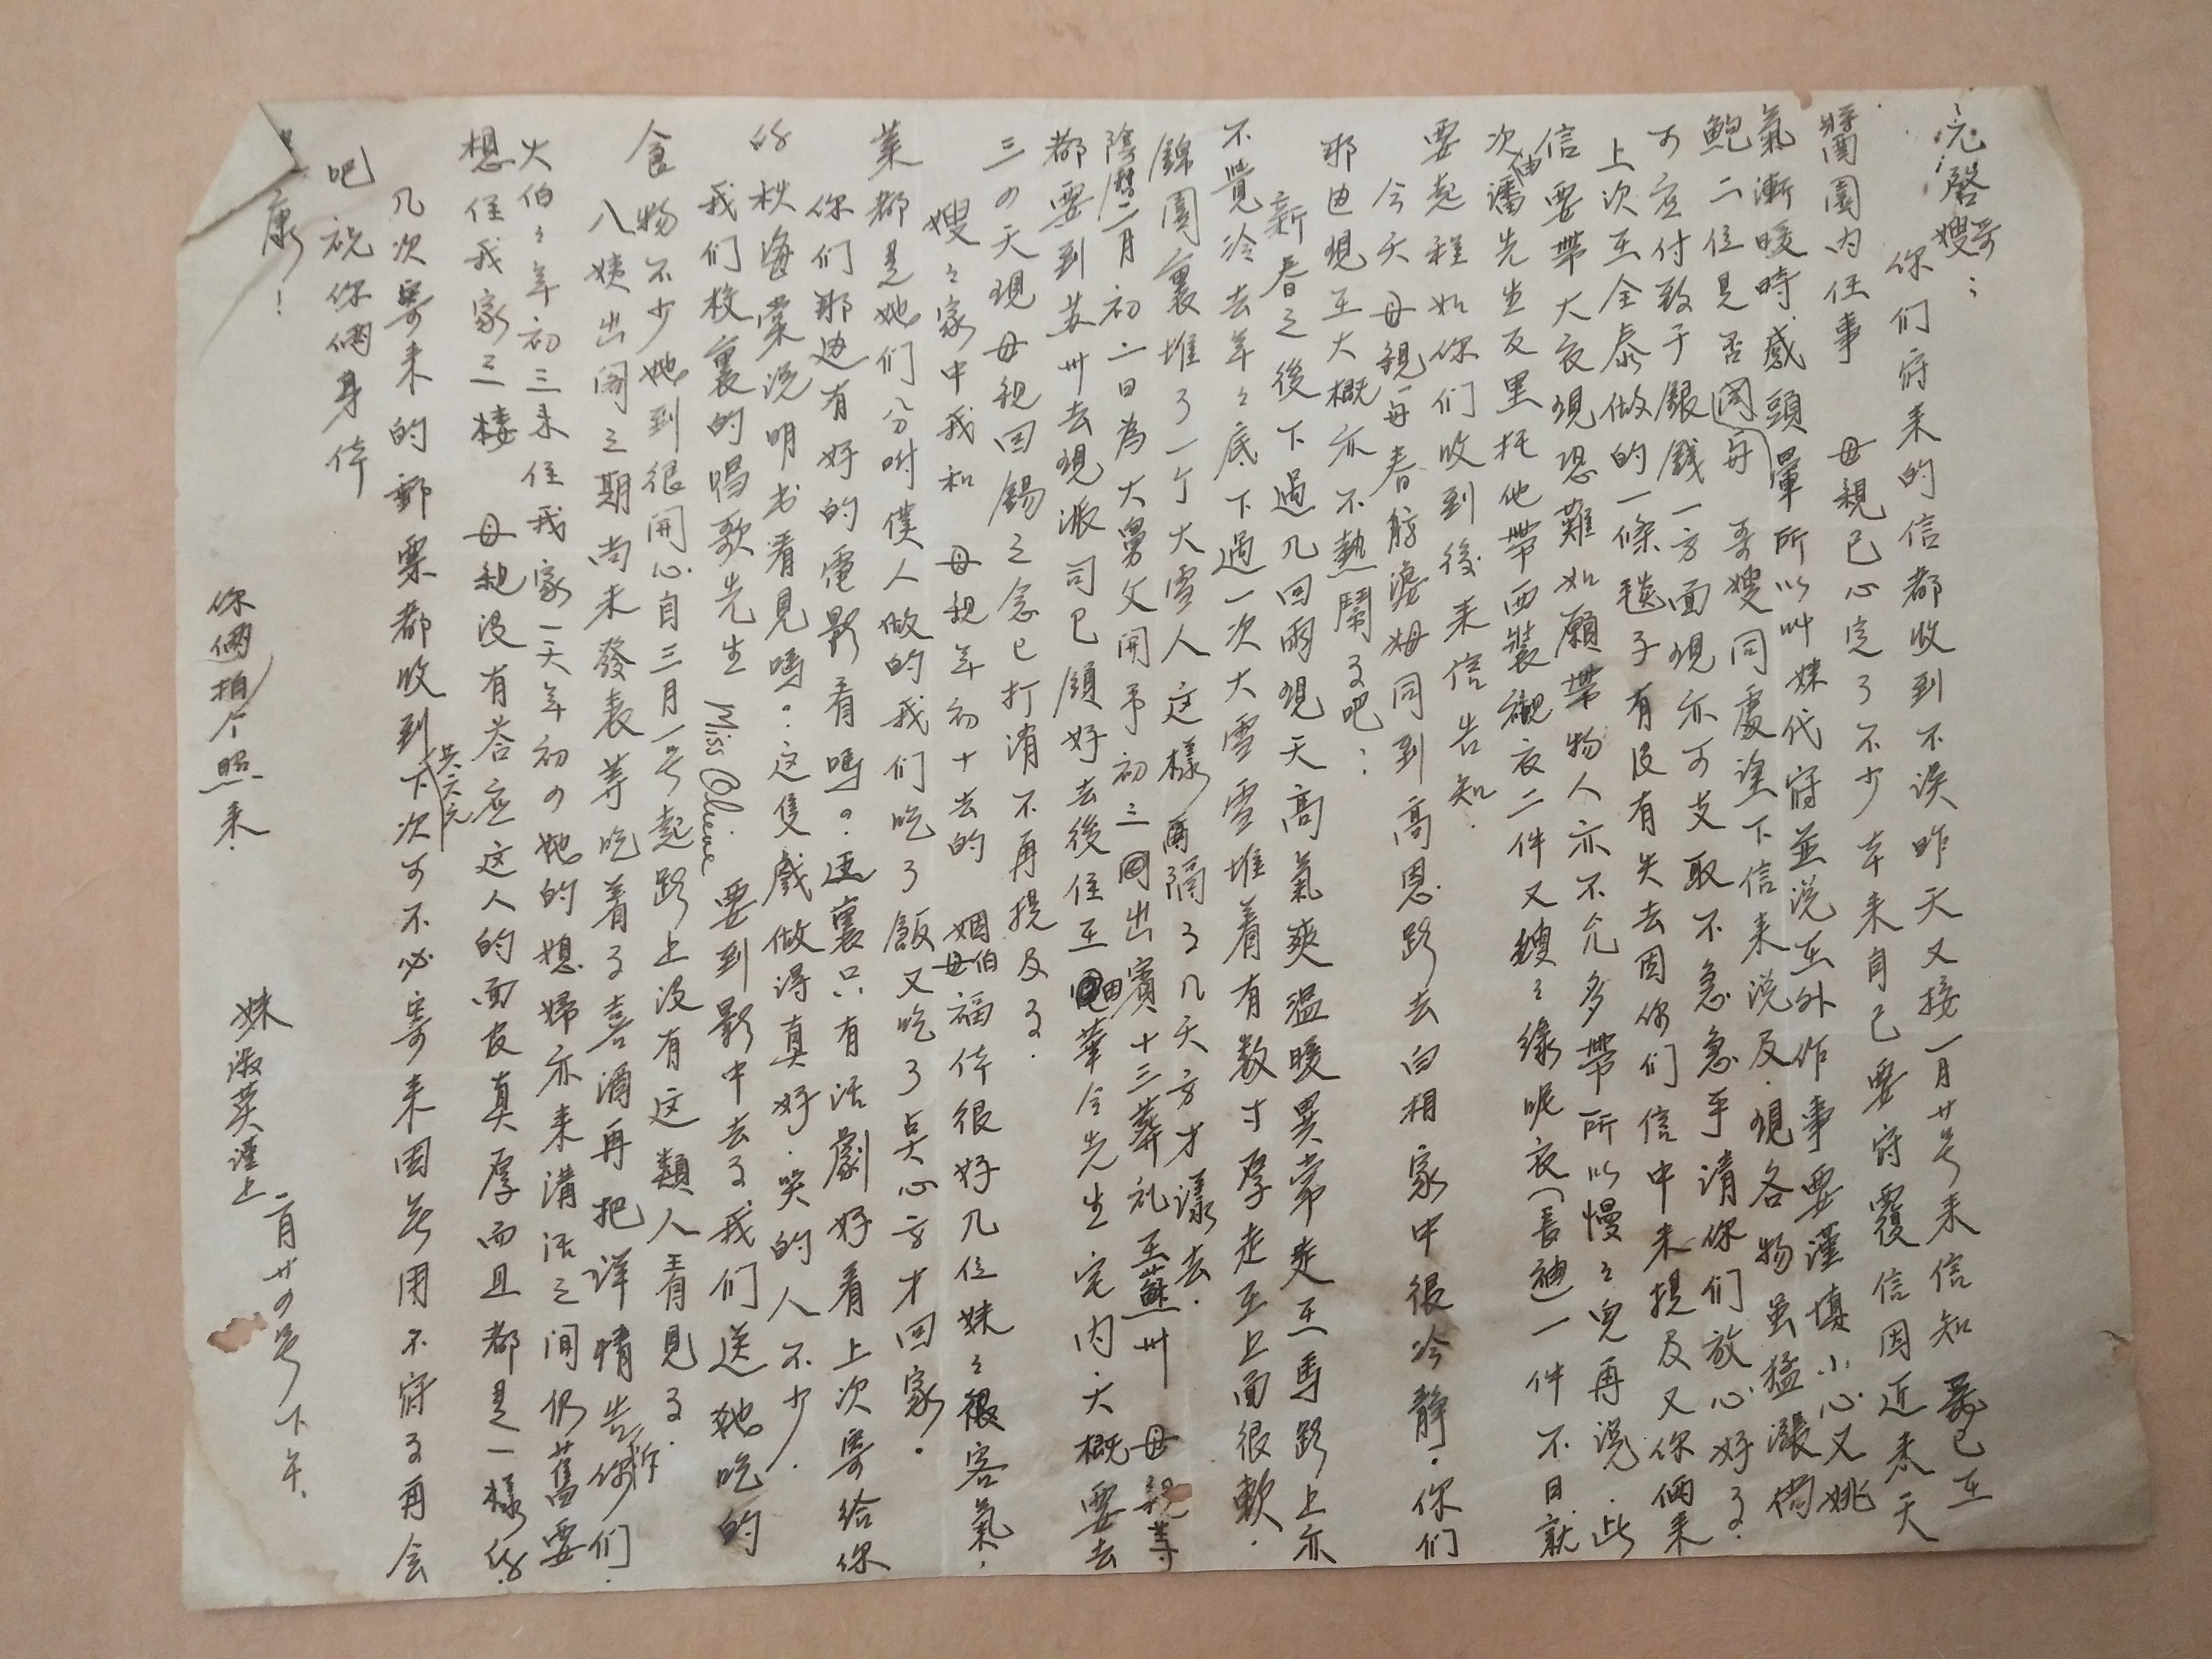 元啓哥嫂：
你们寄来的信都收到不误昨天又接一月廿号来信知 已在
醬園内任事 母親已心定了不少本来自己要寄覆信因近来天
氣漸暖時感頭暈所以叫妹代寄並说在外作事要谨慎小心又姚
鮑二位見否 哥嫂同處塗下信来说及.現各物虽猛漲尚
可应付致于銀錢一方面現亦可支取不急急乎请你们放心好了.
上次在全泰做的一條毯子有没有失去因你们信中未提及又你俩来
信要帶大衣現恐難如願帶物人亦不允多帶所以慢々兒再说.此
次由潘先生反里托他帶西裝襯衣二件又嫂々绿呢衣(長袖)一件不日就
要起程如你们收到後来信告知.
今天母親每春舫婆姆同到高恩路去白相家中很冷静.你们
那边現在大概亦不熱鬧了吧:
新春之後下過几回雨現天高氣爽温暖異常走在馬路上亦
不覺冷去年々底下過一次大雪雪堆着有数寸厚走在上面很軟.
錦園裏堆了一个大雪人这樣再隔了几天方才漾去.
陰曆二月初二日為大舅父開弔初三出賓十三葬礼在蘇州 母親等
都要到苏州去現派司已領好去後住在 華全先生宅内.大概要去
三の天現母親回錫之念已打消不再提及了.
嫂々家中我和 母親年初十去的 姻伯母福体很好几位妹々很客氣.
菜都是她们分咐僕人做的我们吃了飯又吃了点心方才回家.
你们那边有好的電影看嗎。這裏只有话劇好看上次寄给你
的秋海棠说明书看見嗎。这隻戲做得真好.哭的人不少.
我们校裏的唱歌先生 Miss Oheine 要到影中去了我们送她吃的
食物不少她到很開心自三月一号起路上没有这類人看見了.
八姨出閣之期尚未發表等吃着了喜酒再把详情告诉你们.
火伯々年初三来住我家一天年初の她的媳婦亦来講话之间仍舊要
想住我家三楼 母親没有答应这人的面皮真厚而且都是一樣的.
几次寄来的郵票都收到共六元下次可不必寄来因無用不寄了再会
吧祝你俩身体
康！
妹淑英谨上 二月廿の号下午.
你俩拍个照来.